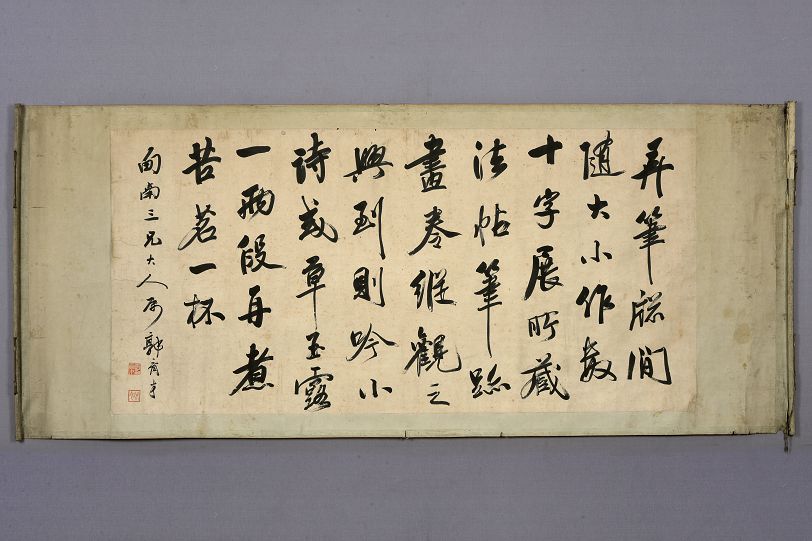 弄筆窓間
隨大小作數
十字展所藏
法帖筆跡
畫卷縱觀之
興到則吟小
詩或草玉露
一兩段再煮
苦茗一杯
甸南三兄大人屬 郭